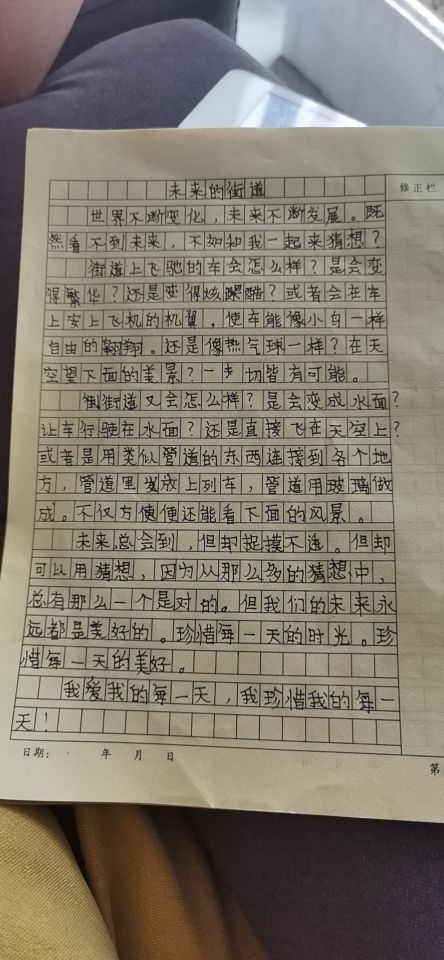 未来的街道
修正栏
世界不断变化，未来不断发展。既
然看不到未来，不如和我一起来猜想？
街道上飞驰的车会怎么样？是会变
得繁华？还是变得炫酷？或者会在车
上安上飞机的机翼，使车能像小鸟一样
自由的翱翔。还是像热气球一样？在天
空望下面的美景？一切皆有可能。
街道又会怎么样？是会变成水面？
让车行驶在水面？还是直接飞在天空上？
或者是用类似管道的东西连接到各个地
方，管道里放上列车，管道用玻璃做
成。不仅方便还能看下面的风景。
未来总会到，但却捉摸不透。但却
可以用猜想，因为从那么多的猜想中，
总有那么一个是对的。但我们的未来永
远都是美好的。珍惜每一天的时光。珍
惜每一天的美好。
我爱我的每一天，我珍惜我的每一
天！
日期： 年 月 日
第